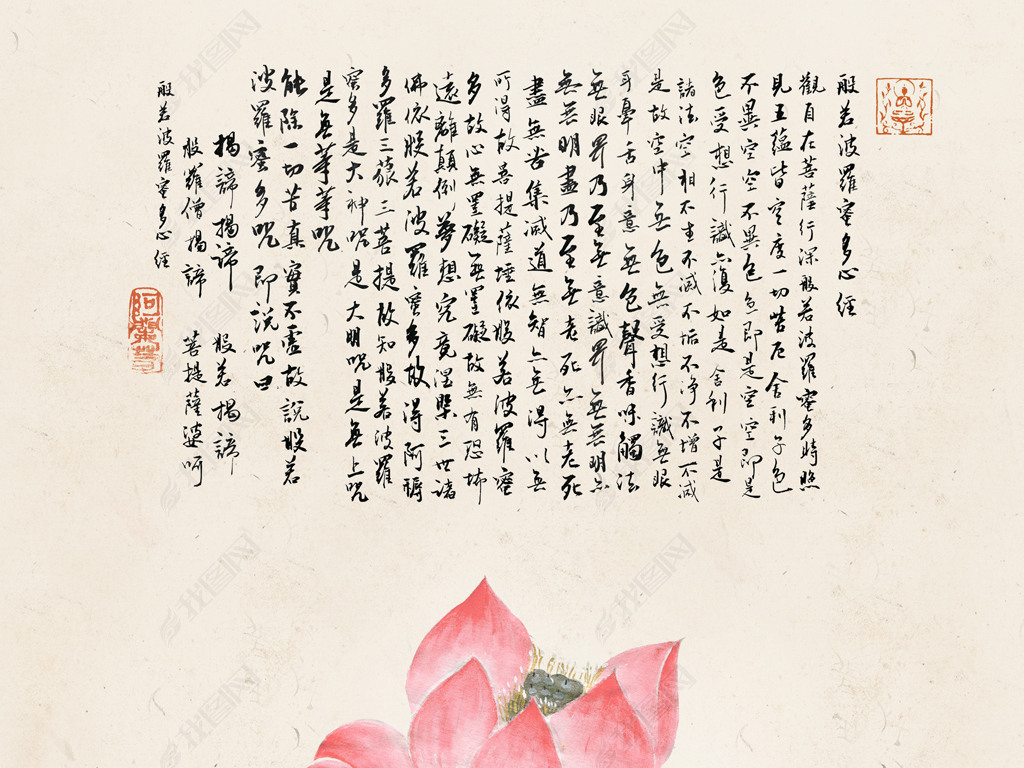 般若波羅蜜多心經
觀自在菩薩行深般若波羅蜜多時照
見五蘊皆空度一切苦厄舍利子色
不異空空不異色色即是空空即是
色受想行識亦復如是舍利子是
諸法空相不生不滅不垢不淨不增不減
是故空中無色無受想行識無眼
耳鼻舌身意無色聲香味觸法
無眼界乃至無意識界無無明亦
無無明盡乃至無老死亦無老死
盡無苦集滅道無智亦無得以無
所得故菩提薩埵依般若波羅蜜
多故心無罣礙無罣礙故無有恐怖
遠離顛倒夢想究竟涅槃三世諸
佛依般若波羅蜜多故得阿耨
多羅三藐三菩提故知般若波羅
蜜多是大神呪是大明呪是無上呪
是無等等呪
能除一切苦真實不虛故說般若
波羅蜜多呪即說呪曰
揭諦揭諦 般若揭諦
般羅僧揭諦 菩提薩婆呵
般若波羅蜜多心經
找图网